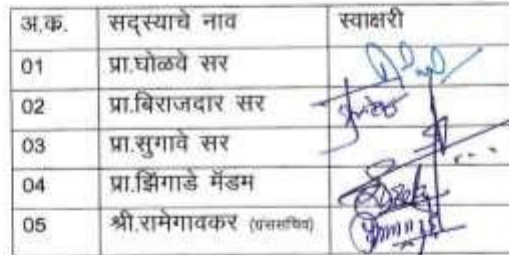 अ.क. सदस्याचे नाव स्वाक्षरी
01 प्रा.घोळवे सर
02 प्रा.बिराजदार सर
03 प्रा.सुगावे सर
04 प्रा.झिंगाडे मॅडम
05 श्री.रामेगावकर